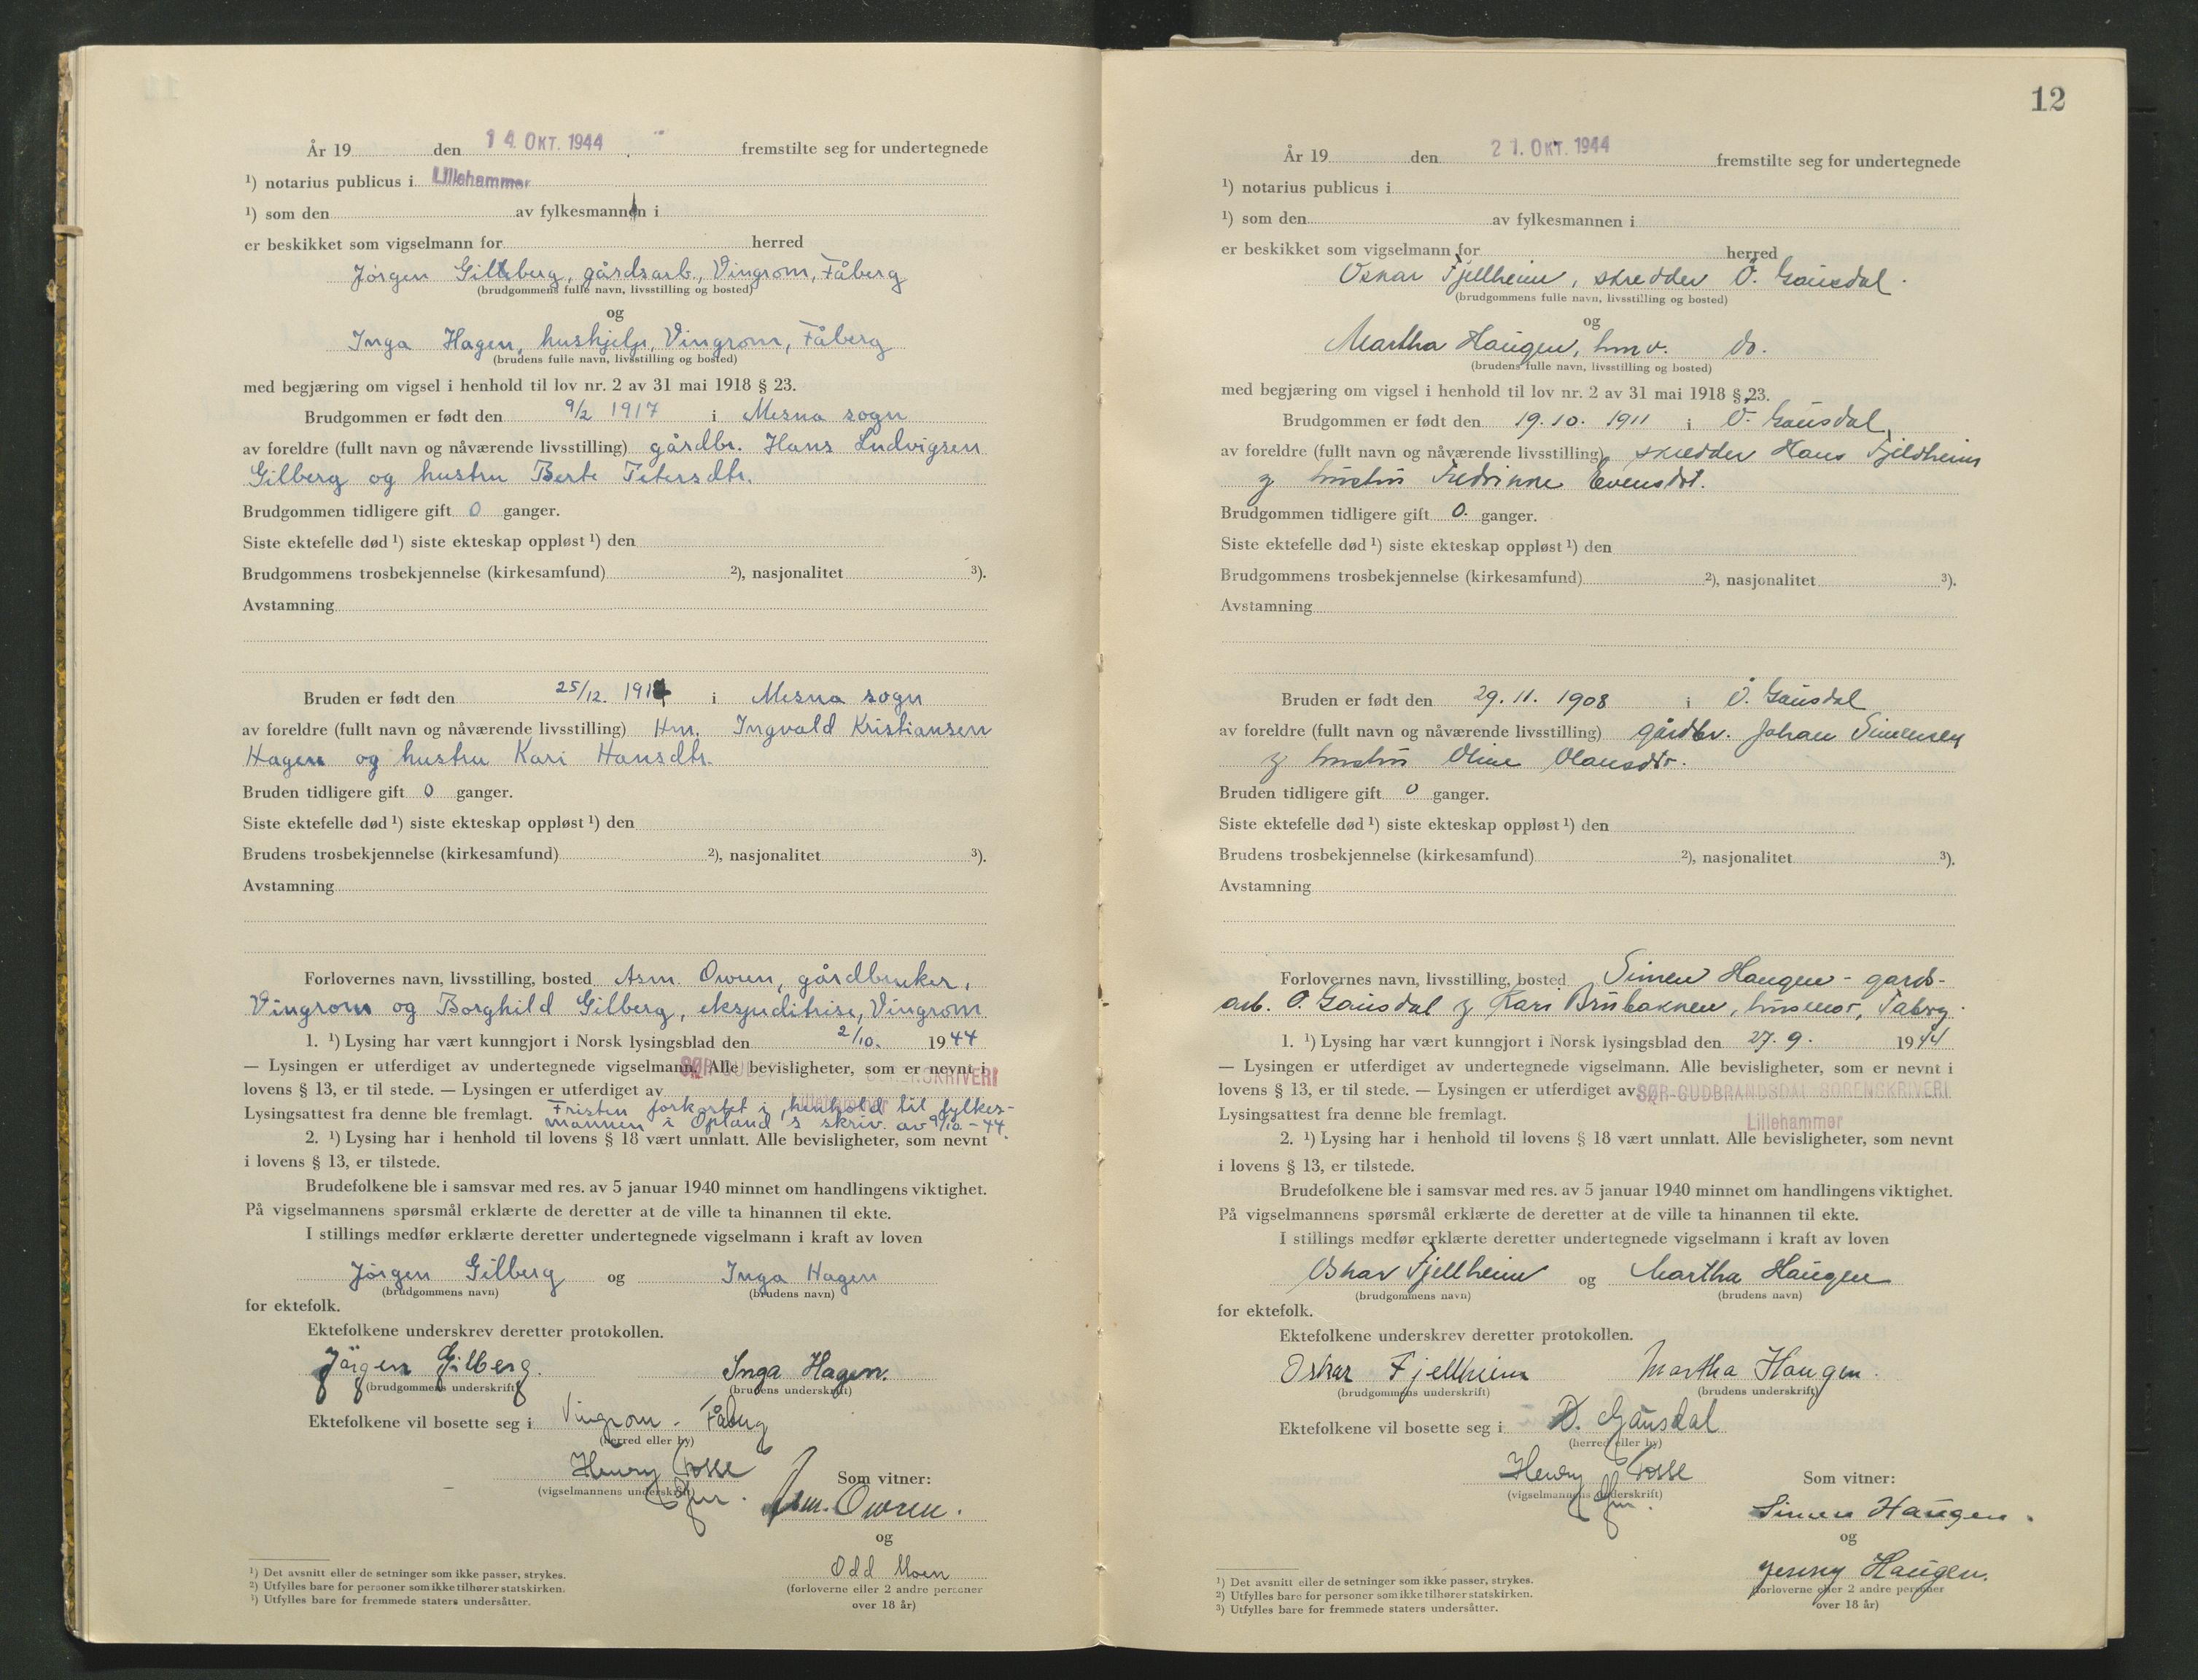 År 19 den 14. OKT. 1944 fremstilte seg for undertegnede
¹) notarius publicus i Lillehammer
¹) som den av fylkesmannen i
er beskikket som vigselmann for herred
Jørgen Gilberg, gårdsarb., Vingrom, Fåberg
(brudgommens fulle navn, livsstilling og bosted)
og
Inga Hagen, hushjelp, Vingrom, Fåberg
(brudens fulle navn, livsstilling og bosted)
med begjæring om vigsel i henhold til lov nr. 2 av 31 mai 1918 § 23.
Brudgommen er født den 9/2 1917 i Mesna sogn
av foreldre (fullt navn og nåværende livsstilling) gårdbr. Hans Ludvigsen
Gilberg og hustru Berte Petersdtr.
Brudgommen tidligere gift 0 ganger.
Siste ektefelle død ¹) siste ekteskap oppløst ¹) den
Brudgommens trosbekjennelse (kirkesamfund) ²), nasjonalitet ³).
Avstamning
Bruden er født den 25/12. 191 i Mesna sogn
av foreldre (fullt navn og nåværende livsstilling) Hm. Ingvald Kristiansen
Hagen og hustru Kari Hansdtr.
Bruden tidligere gift 0 ganger.
Siste ektefelle død ¹) siste ekteskap oppløst ¹) den
Brudens trosbekjennelse (kirkesamfund) ²), nasjonalitet ³).
Avstamning
Forlovernes navn, livsstilling, bosted Asm. Owren, gårdbruker,
Vingrom og Borghild Gilberg, ekspeditrise, Vingrom
1. ¹) Lysing har vært kunngjort i Norsk lysingsblad den 2/10. 1944
— Lysingen er utferdiget av undertegnede vigselmann. Alle bevisligheter, som er nevnt i
lovens § 13, er til stede. — Lysingen er utferdiget av SØR-GUDBRANDSDAL SORENSKRIVERI
Lillehammer
Lysingsattest fra denne ble fremlagt. Fristen forkortet i henhold til fylkes-
mannen i Opland's skriv. av 9/10-44.
2. ¹) Lysing har i henhold til lovens § 18 vært unnlatt. Alle bevisligheter, som nevnt
i lovens § 13, er tilstede.
Brudefolkene ble i samsvar med res. av 5 januar 1940 minnet om handlingens viktighet.
På vigselmannens spørsmål erklærte de deretter at de ville ta hinannen til ekte.
I stillings medfør erklærte deretter undertegnede vigselmann i kraft av loven
Jørgen Gilberg og Inga Hagen
(brudgommens navn) (brudens navn)
for ektefolk.
Ektefolkene underskrev deretter protokollen.
Jørgen Gilberg. Inga Hagen.
(brudgommens underskrift) (brudens underskrift)
Ektefolkene vil bosette seg i Vingrom - Fåberg
(herred eller by)
Henry Fosse
(vigselmannens underskrift)
Som vitner:
Asm. Owren.
og
Odd Moen
(forloverne eller 2 andre personer
over 18 år)
¹) Det avsnitt eller de setninger som ikke passer, strykes.
²) Utfylles bare for personer som ikke tilhører statskirken.
¹) Utfylles bare for fremmede staters undersåtter.
12
År 19 den 21. OKT. 1944 fremstilte seg for undertegnede
¹) notarius publicus i
¹) som den av fylkesmannen i
er beskikket som vigselmann for herred
Oskar Fjellheim, skredder Ö. Gausdal.
(brudgommens fulle navn, livsstilling og bosted)
og
Martha Haugen, hmv. do.
(brudens fulle navn, livsstilling og bosted)
med begjæring om vigsel i henhold til lov nr. 2 av 31 mai 1918 § 23.
Brudgommen er født den 19. 10. 1911 i Ö. Gausdal,
av foreldre (fullt navn og nåværende livsstilling) skredder Hans Fjeldheim
og hustru Fredrikke Evensdt.
Brudgommen tidligere gift 0. ganger.
Siste ektefelle død ¹) siste ekteskap oppløst ¹) den
Brudgommens trosbekjennelse (kirkesamfund) ²), nasjonalitet ³).
Avstamning
Bruden er født den 29. 11. 1908 i Ö. Gausdal
av foreldre (fullt navn og nåværende livsstilling) gårdbr. Johan Simensen
og hustru Oline Olausdtr.
Bruden tidligere gift 0 ganger.
Siste ektefelle død ¹) siste ekteskap oppløst ¹) den
Brudens trosbekjennelse (kirkesamfund) ²), nasjonalitet ³).
Avstamning
Forlovernes navn, livsstilling, bosted Simen Haugen - gards-
arb. Ö. Gausdal og Kari Brubakken, husmor, Faberg.
1. ¹) Lysing har vært kunngjort i Norsk lysingsblad den 27. 9. 1944
— Lysingen er utferdiget av undertegnede vigselmann. Alle bevisligheter, som er nevnt i
lovens § 13, er til stede. — Lysingen er utferdiget av SØR-GUDBRANDSDAL SORENSKRIVERI
Lysingsattest fra denne ble fremlagt.
Lillehammer
2. ¹) Lysing har i henhold til lovens § 18 vært unnlatt. Alle bevisligheter, som nevnt
i lovens § 13, er tilstede.
Brudefolkene ble i samsvar med res. av 5 januar 1940 minnet om handlingens viktighet.
På vigselmannens spørsmål erklærte de deretter at de ville ta hinannen til ekte.
I stillings medfør erklærte deretter undertegnede vigselmann i kraft av loven
Oskar Fjellheim og Martha Haugen
(brudgommens navn) (brudens navn)
for ektefolk.
Ektefolkene underskrev deretter protokollen.
Oskar Fjellheim Martha Haugen.
(brudgommens underskrift) (brudens underskrift)
Ektefolkene vil bosette seg i Ö. Gausdal
(herred eller by)
Henry Fosse
(vigselmannens underskrift)
Som vitner:
Simen Haugen.
og
Jenny Haugen.
(forloverne eller 2 andre personer
over 18 år)
¹) Det avsnitt eller de setninger som ikke passer, strykes.
²) Utfylles bare for personer som ikke tilhører statskirken.
³) Utfylles bare for fremmede staters undersåtter.